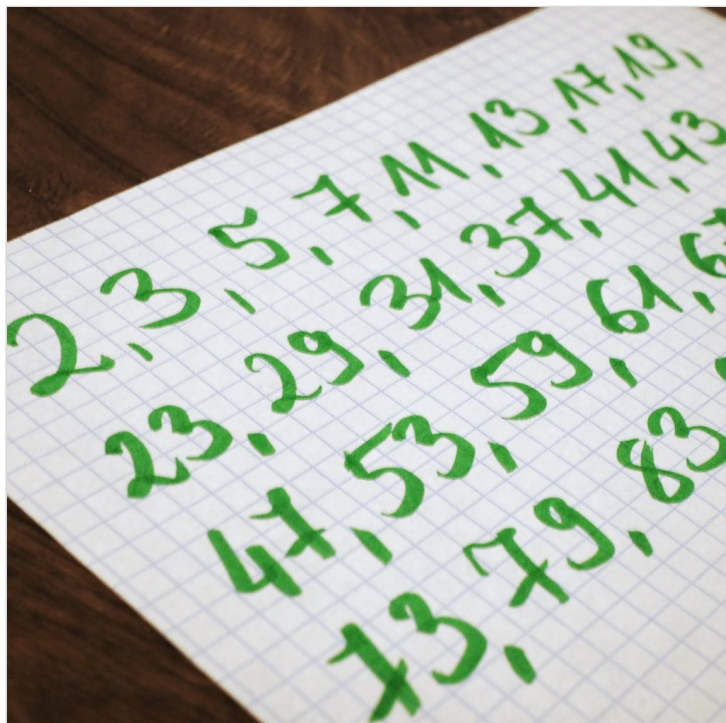 2, 3, 5, 7, 11, 13, 17, 19,
23, 29, 31, 37, 41, 43
47, 53, 59, 61, 67
73, 79, 83